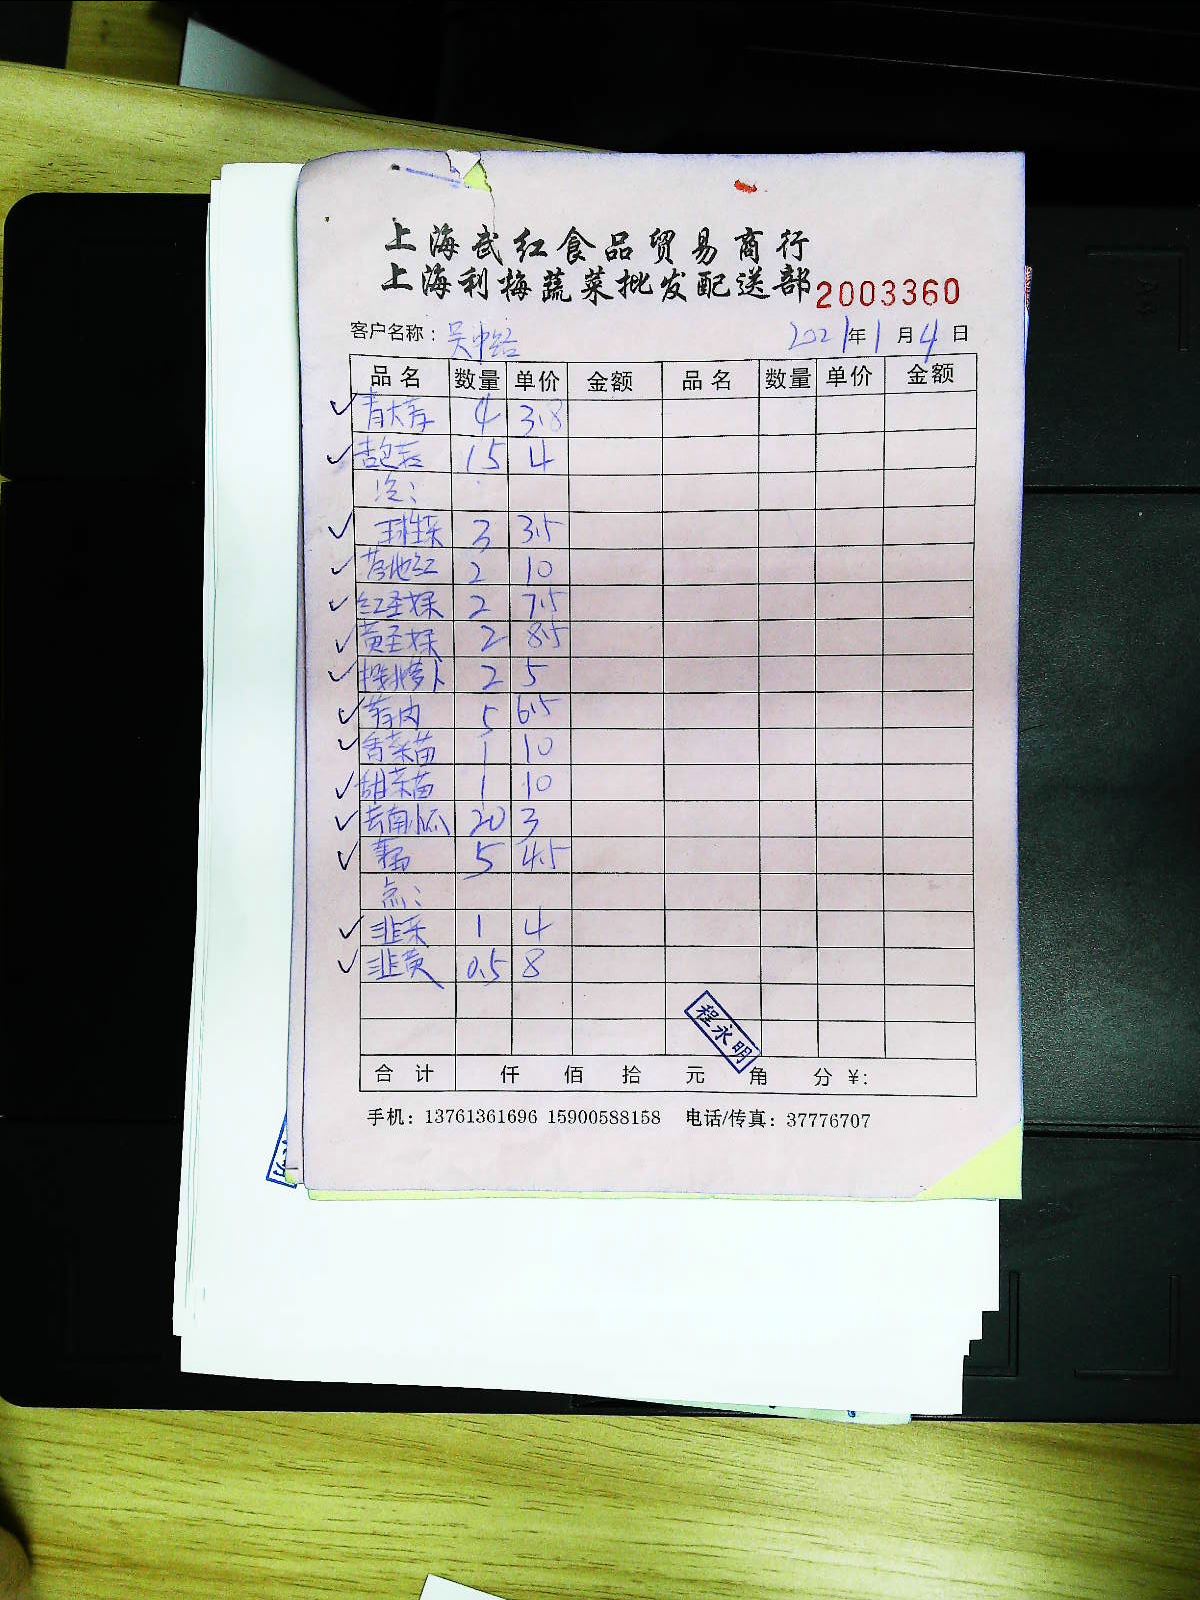 上海武红食品贸易商行
上海利梅蔬菜批发配送部 2003360
客户名称：吴中路 2021年1月4日
品名 数量 单价 金额 品名 数量 单价 金额
青大青 4 3.8
杏包菇 15 4
冷：
球生菜 3 3.5
2 10
红圣女果 2 7.5
黄圣女果 2 8.5
萝卜 2 5
5 6.5
香菜苗 1 10
甜菜苗 1 10
云南小瓜 20 3
5 4.5
点：
韭菜 1 4
韭黄 0.5 8
程永明
合计 仟 佰 拾 元 角 分 ¥:
手机：13761361696 15900588158 电话/传真：37776707